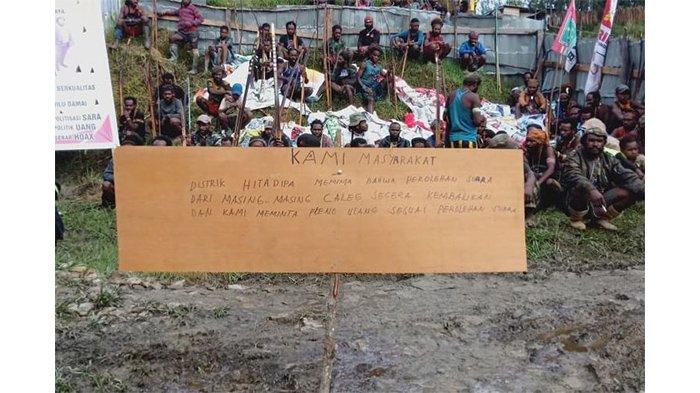 BERKUALITAS
ILU DAMAI
OLITISASI SARA
POLITIK UANG
EBAR HOAX
KAMI MASYARAKAT
DISTRIK HITADIPA MEMINTA BAHWA PEROLEHAN SUARA
DARI MASING-MASING CALEG SEGERA KEMBALIKAN
DAN KAMI MEMINTA PLENO ULANG SESUAI PEROLEHAN SUARA